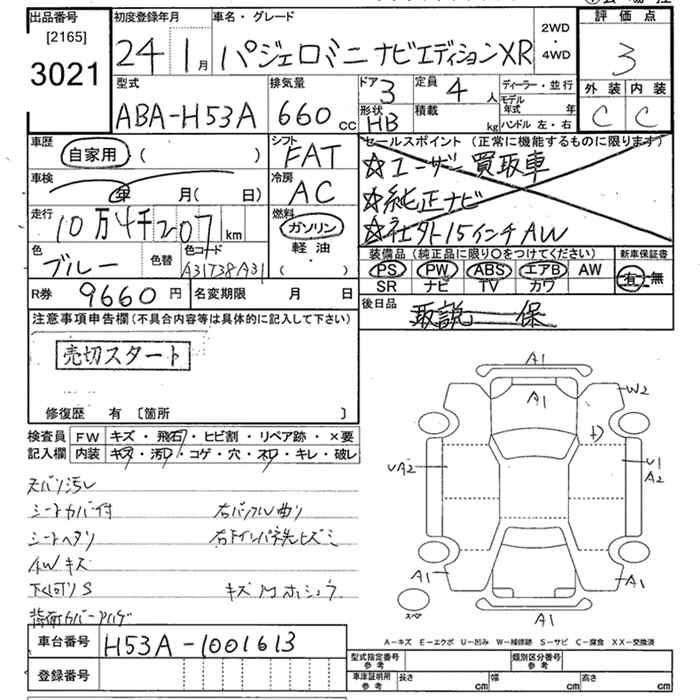 出品番号 初度登録年月 車名・グレード 評価点
[2165]
3021
24 1月 パジェロミニ ナビエディションXR 2WD・4WD 3
型式 排気量 ドア 3 定員 4人 ディーラー・並行 外装 内装
ABA-H53A 660cc 形状 HB 積載 kg モデル年式 年 C C
ハンドル 左・右
車歴 シフト セールスポイント(正常に機能するものに限ります)
自家用 ( ) FAT ☆ユーザー買取車
車検 冷房 ☆純正ナビ
年 月( 日) AC ☆社外15インチAW
走行 燃料
10万4千207km ガソリン 装備品(純正品に限り○をつけてください) 新車保証書
色 色替 色コード 軽油 PS PW ABS エアB AW 有・無
ブルー A31T38A31 ( ) SR ナビ TV カワ
R券 9660円 名変期限 月 日 後日品
取説 保
注意事項申告欄(不具合内容等は具体的に記入して下さい)
売切スタート
修復歴 有 [箇所 ]
検査員 FW キズ・飛石・ヒビ割・リペア跡・×要
記入欄 内装 キズ・汚れ・コゲ・穴・スレ・キレ・破レ
シートカバー付
シートヘタリ
AWキズ
A1
A1
W2
UA2
U1
A2
A1
A1
スペア
A1
A-キズ E-エクボ U-凹み W-補修跡 S-サビ C-腐食 XX-交換済
車台番号 H53A-1001613
登録番号
型式指定番号 参考 類別区分番号 参考
車庫証明用 参考 長さ cm 幅 cm 高さ cm